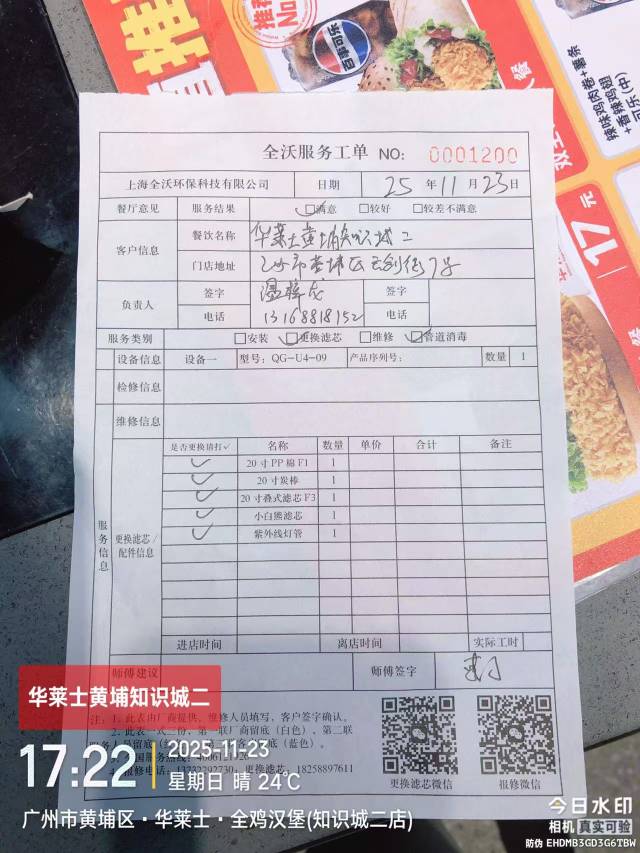 推荐
No
百事可乐
辣味鸡肉卷+薯条
+香辣鸡翅
+可乐(中)
17元
全沃服务工单 NO: 0001200
上海全沃环保科技有限公司 日期 25 年 11 月 23 日
餐厅意见 服务结果 ☑满意 □较好 □较差不满意
客户信息 餐饮名称 华莱士黄埔知识城二
门店地址 市黄埔区云创街7号
负责人 签字 签字
电话 13168818152 电话
服务类别 □安装 ☑更换滤芯 □维修 ☑管道消毒
设备信息 设备一 型号: QG-U4-09 产品序列号: 数量 1
检修信息
维修信息
服务信息
更换滤芯/配件信息
是否更换请打✓ 名称 数量 单价 合计 备注
✓ 20寸PP棉F1 1
✓ 20寸炭棒 1
✓ 20寸叠式滤芯F3 1
✓ 小白熊滤芯 1
✓ 紫外线灯管 1
进店时间 离店时间 实际工时
师傅建议 师傅签字
注: 1、此表由厂商提供、维修人员填写，客户签字确认。
2、此表一式三份，第一联厂商留底(白色)、第二联
留底(蓝色)。
更换滤芯: 18258897611
更换滤芯微信 报修微信
华莱士黄埔知识城二
17:22 2025-11-23
星期日 晴 24℃
广州市黄埔区·华莱士·全鸡汉堡(知识城二店)
今日水印
相机 真实可验
防伪 EHDMB3GD3G6TBW